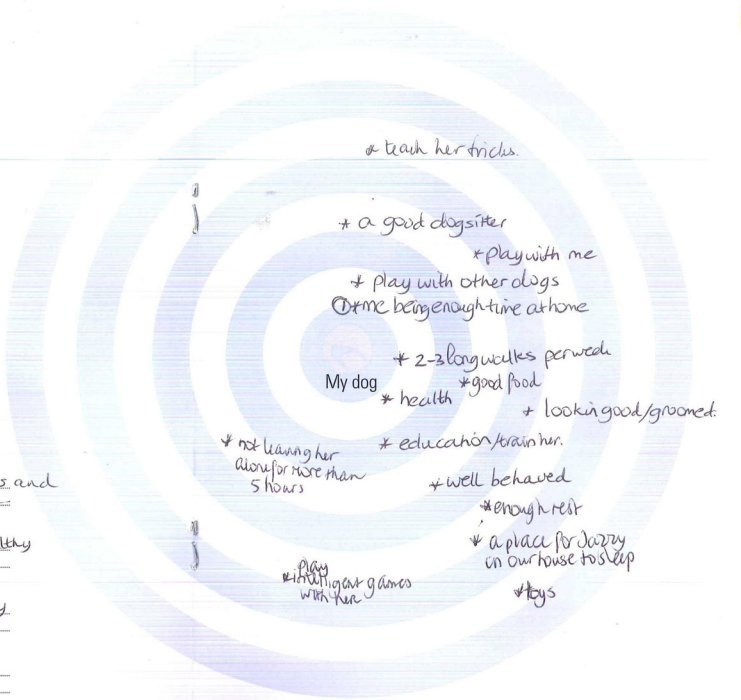 * teach her tricks.
* a good dogsitter
* play with me
* play with other dogs
① * me being enough time at home
* 2-3 long walks per week
My dog
* good food
* health
* looking good/groomed.
* not leaving her
alone for more than
5 hours
* education/train her.
s and
* well behaved
* enough rest
lthy
* a place for Jazzy
in our house to sleep
Play
* intelligent games
with her
* toys
y